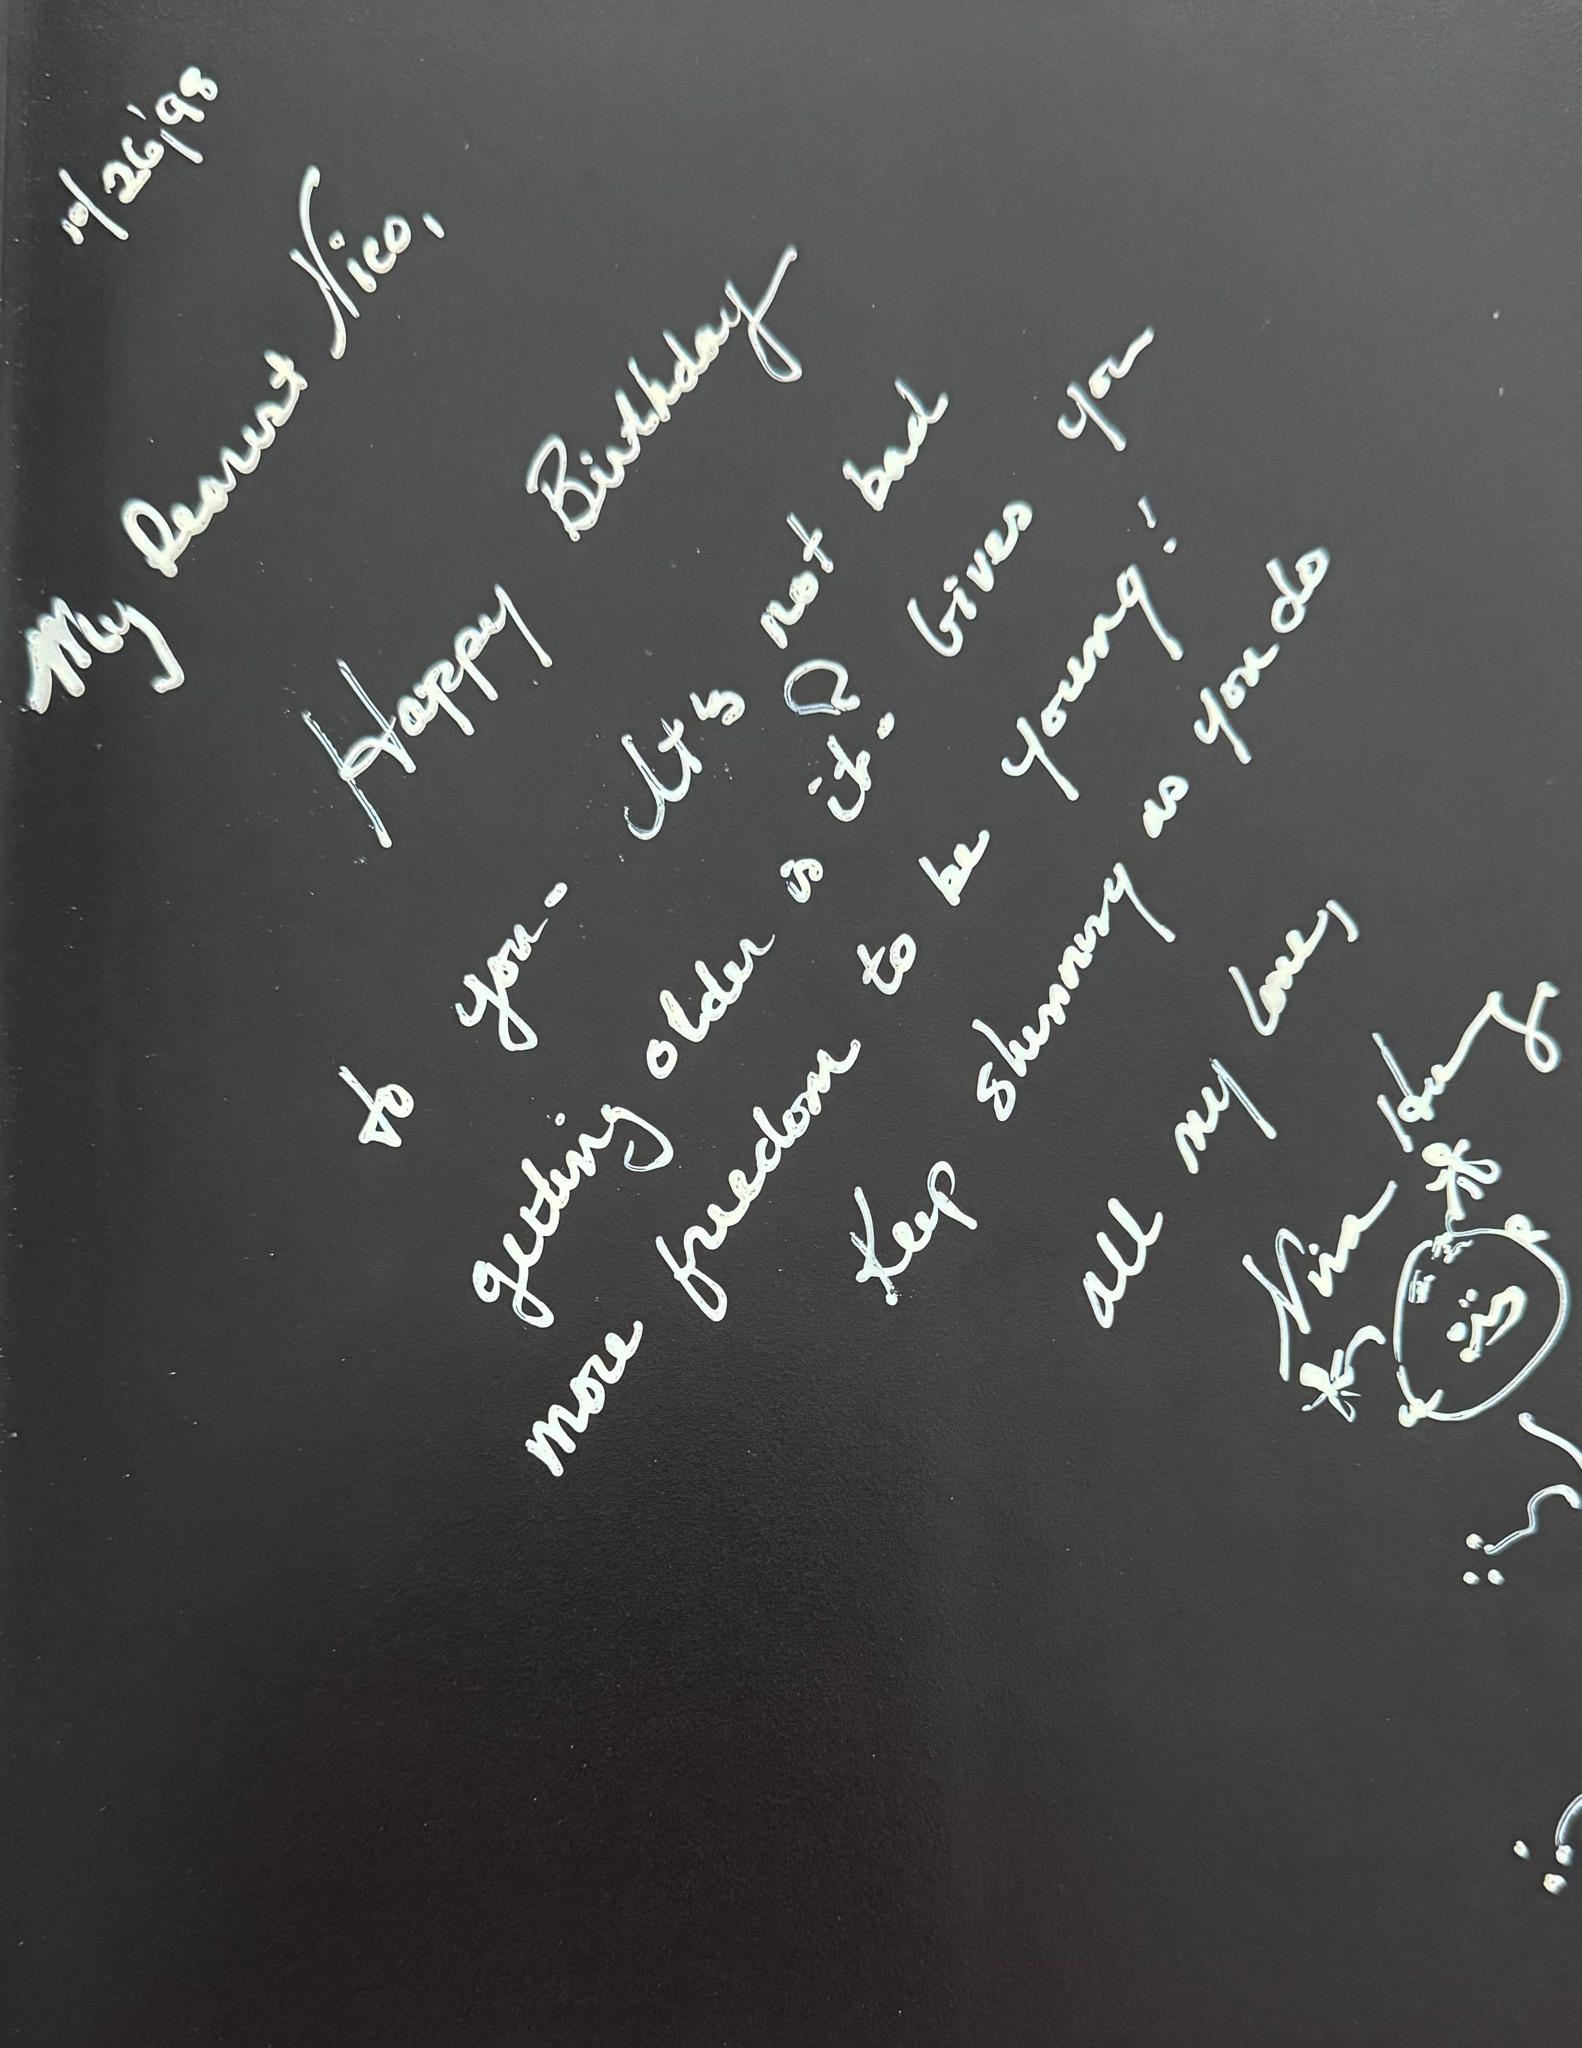 10/26/98
My Dearest Nico,
Happy Birthday
to you- It's not bad
getting older is it? Gives you
more freedom to be young!
Keep shinning as you do
all my love,
Nina